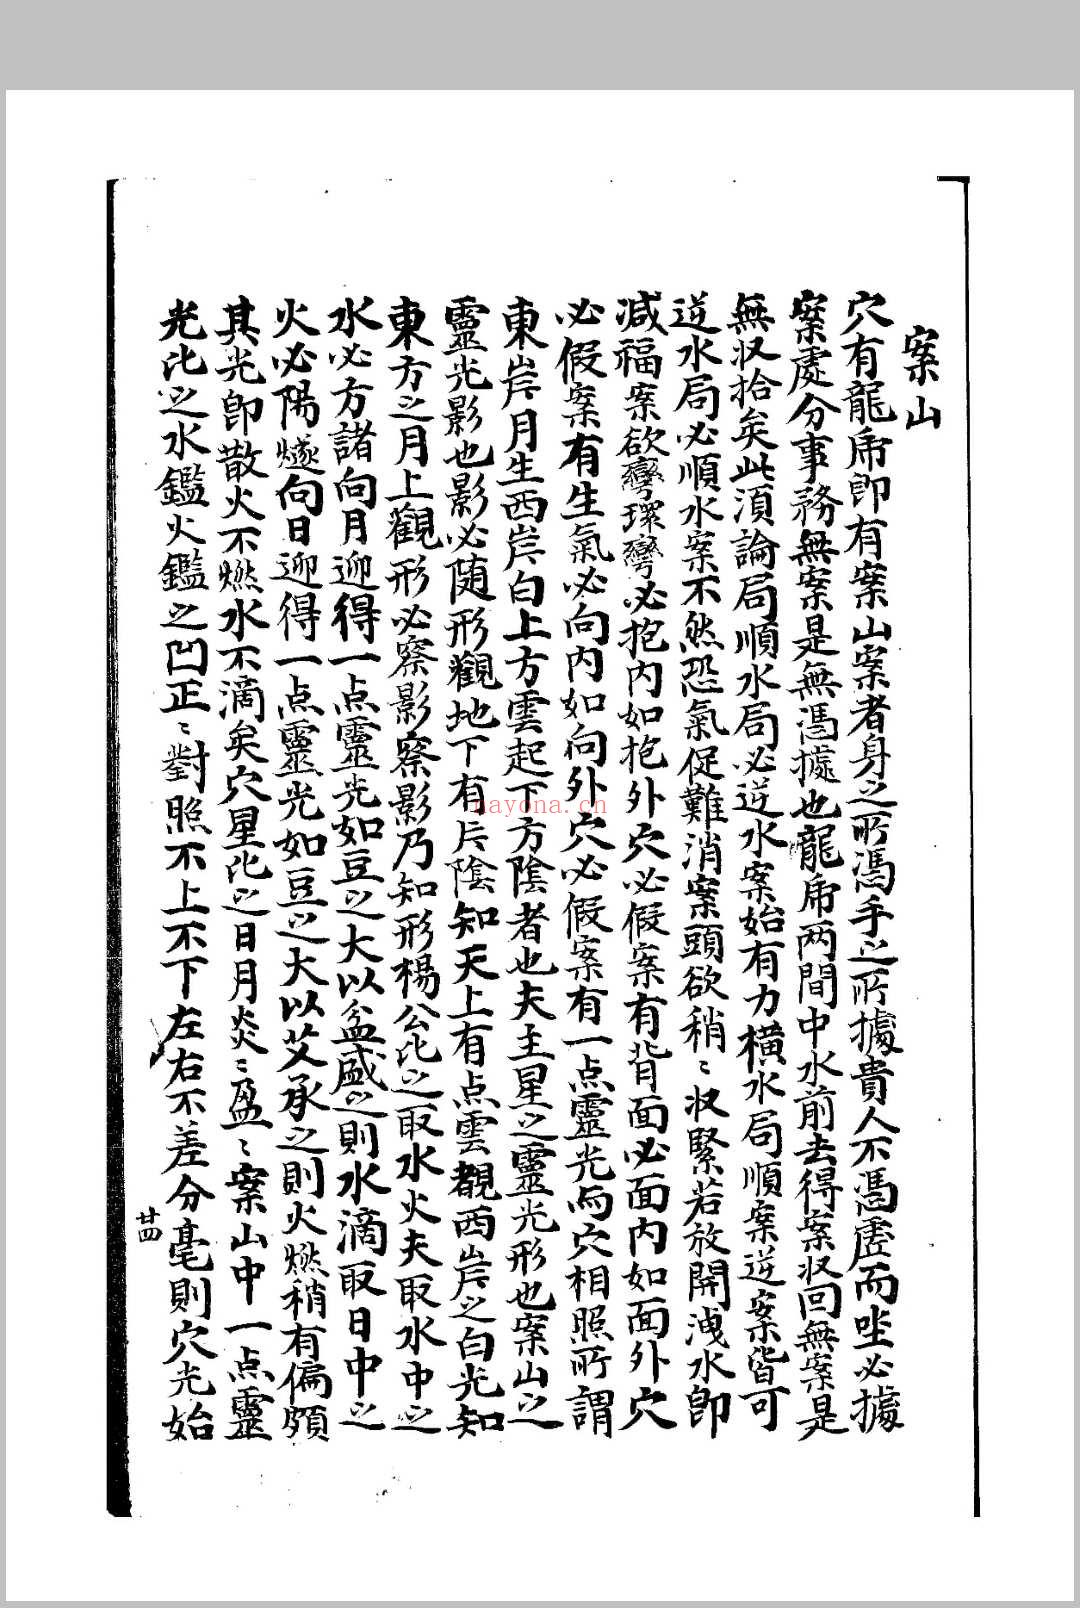 案山
穴有龍虎即有案山案者身之所馮手之所據貴人不馮虛而坐必據
案處分事務無案是無馮據也龍虎两間中水前去得案收回無案是
無收拾矣此須論局順水局必逆水案始有力橫水局順案逆案皆可
逆水局必順水案不然恐氣促難消案頭欲稍〻收緊若放開洩水即
減福案欲彎環彎必抱内如抱外穴必假案有背面必面内如面外穴
必假案有生氣必向内如向外穴必假案有一点靈光與穴相照所謂
東岸月生西岸白上方雲起下方陰者也夫主星之靈光形也案山之
靈光影也影必随形觀地下有片陰知天上有点雲觀西岸之白光知
東方之月上觀形必察影察影乃知形楊公比之取水火夫取水中之
水必方諸向月迎得一点靈光如豆之大以盆盛之則水滴取日中之
火必陽燧向日迎得一点靈光如豆之大以艾承之則火燃稍有偏頗
其光即散火不燃水不滴矣穴星比之日月炎〻盈〻案山中一点靈
光比之水鑑火鑑之凹正〻對照不上不下左右不差分毫則穴光始
廿四
nayona.cn